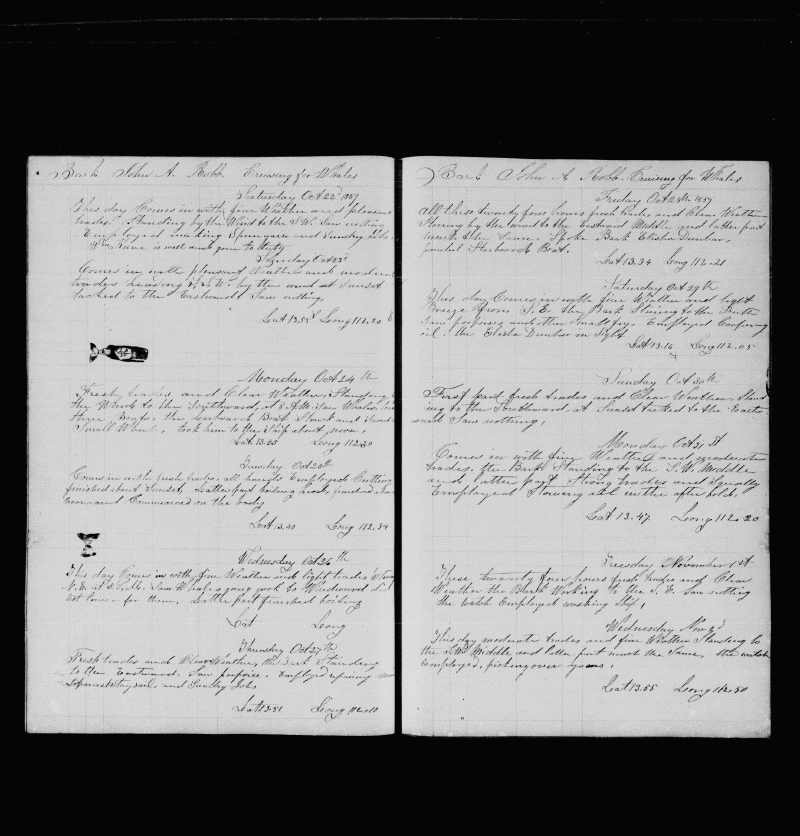 Bark John A. Robb Cruising for Whales
Saturday Oct 22d 1859
This day Comes in with fine Weather and pleasant
trades. Standing by the Wind to the S.W. Saw nothing
Employed making Spunyarn and Sundry Jobs
Wm Kane is well and gone to duty
Sunday Oct 23d
Comes in with pleasant Weather and moderate
trades heading S.S.W. by the wind at Sunset
tacked to the Eastward Saw nothing
Lat 13.55 Long 112.20
Monday Oct 24th
Fresh trades and Clear Weather, Standing
the Wind to the Southward, at 8 A.M. Saw Whales
three Boats the Larboard Boat Struck and
Small Whale, took him to the Ship about noon.
Lat 13.55 Long 112.30
Tuesday Oct 25th
Comes in with fresh trades, all hands Employed Cutting
finished about Sunset, Latter part boiling head, finished
and Commenced on the body
Lat 13.40 Long 112.34
Wednesday Oct 26th
This day Comes in with fine Weather and light trades
N.E. at Saw Whales going quick to Windward did
not lower for them, Latter part finished boiling
Lat Long
Thursday Oct 27th
Fresh trades and Clear Weather, the Bark Standing
to the Eastward. Saw porpoises. Employed repairing
topmaststaysail, and Sundry Jobs
Lat 13.51 Long 112.10
Bark John A Robb Cruising for Whales
Friday Oct 28th 1859
All these twenty four hours fresh trades and Clear Weather
Steering by the wind to the Eastward Middle and latter part
much the Same. Spoke Bark Elisha Dunbar,
painted Starboard Boat.
Lat 13.34 Long 112.21
Saturday Oct 29th
This day Comes in with fine Weather and light
Breeze from S.E. the Bark Steering to the South
Saw porpoises and other Small fry. Employed Coopering
oil. the Elisha Dunbar in Sight
Lat 13.14 Long 112.05
Sunday Oct 30th
First part fresh trades and Clear Weather, Stand
ing to the Southward, at Sunset tacked to the East
ward Saw nothing,
Monday Oct 31st
Comes in with fine Weather and moderate
trades. the Bark Standing to the S.W. Middle
and latter part Strong trades and Squally
Employed Stowing oil in the after hold.
Lat 13.47 Long 112.20
Tuesday November 1st
These twenty four hours fresh trades and Clear
Weather the Bark Working to the S.E. Saw nothing
the watch Employed washing Ship,
Wednesday Nov 2d
This day moderate trades and fine Weather Standing to
the S.W. Middle and latter part much the Same, the watch
Employed, picking over
Lat 13.55 Long 112.50